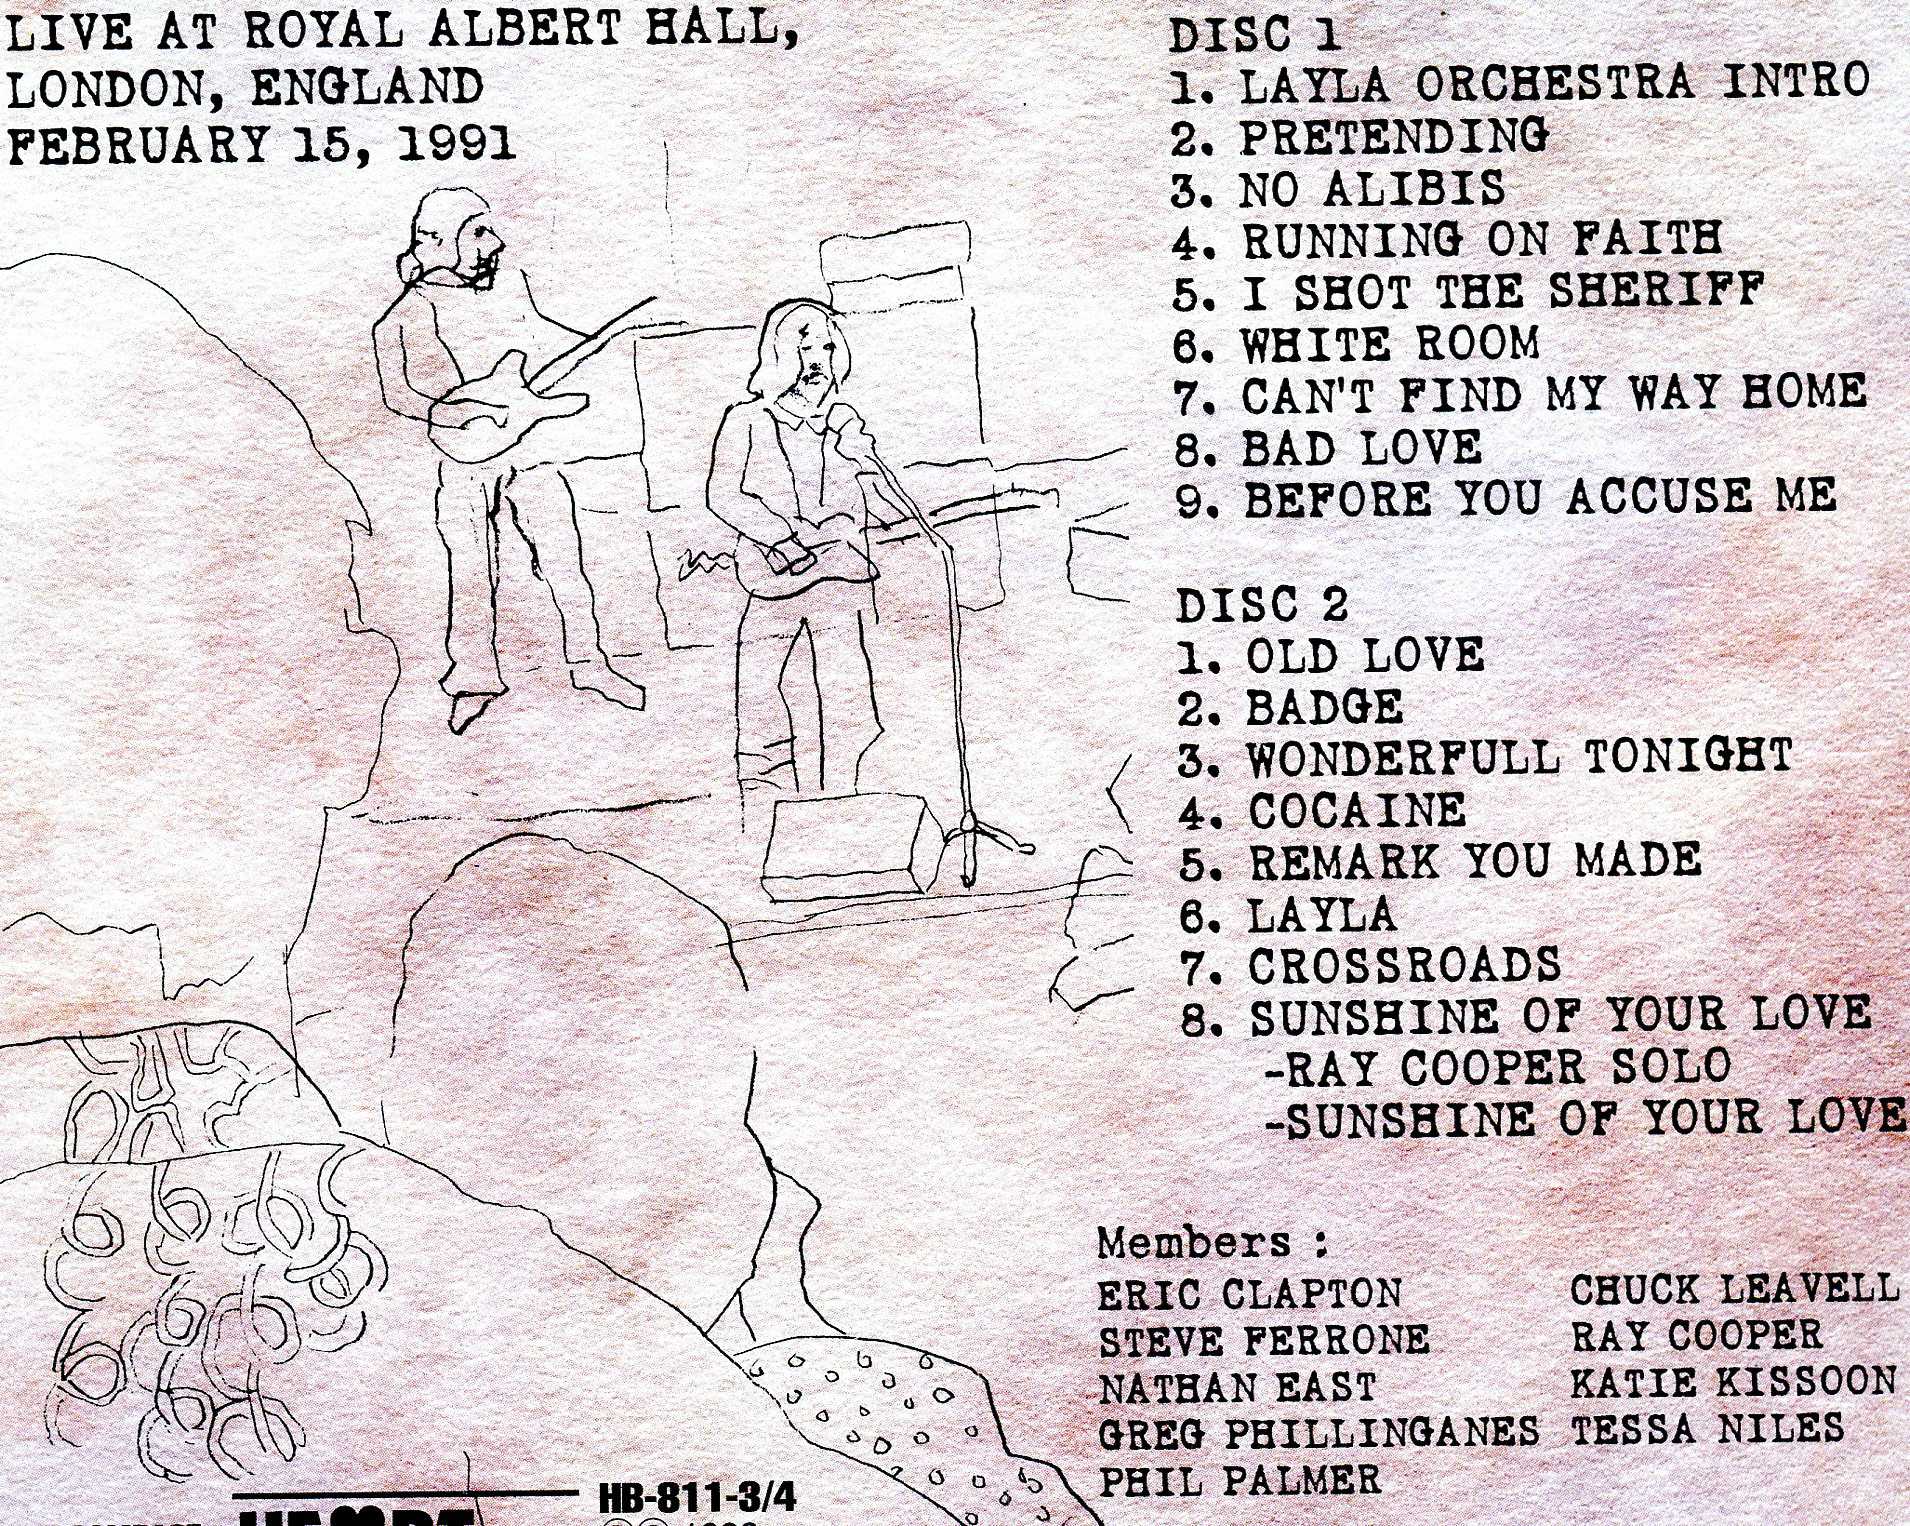 LIVE AT ROYAL ALBERT HALL,
LONDON, ENGLAND
FEBRUARY 15, 1991
DISC 1
1. LAYLA ORCHESTRA INTRO
2. PRETENDING
3. NO ALIBIS
4. RUNNING ON FAITH
5. I SHOT THE SHERIFF
6. WHITE ROOM
7. CAN'T FIND MY WAY HOME
8. BAD LOVE
9. BEFORE YOU ACCUSE ME
DISC 2
1. OLD LOVE
2. BADGE
3. WONDERFULL TONIGHT
4. COCAINE
5. REMARK YOU MADE
6. LAYLA
7. CROSSROADS
8. SUNSHINE OF YOUR LOVE
-RAY COOPER SOLO
-SUNSHINE OF YOUR LOVE
Members :
ERIC CLAPTON
STEVE FERRONE
NATHAN EAST
GREG PHILLINGANES
PHIL PALMER
CHUCK LEAVELL
RAY COOPER
KATIE KISSOON
TESSA NILES
HB-811-3/4